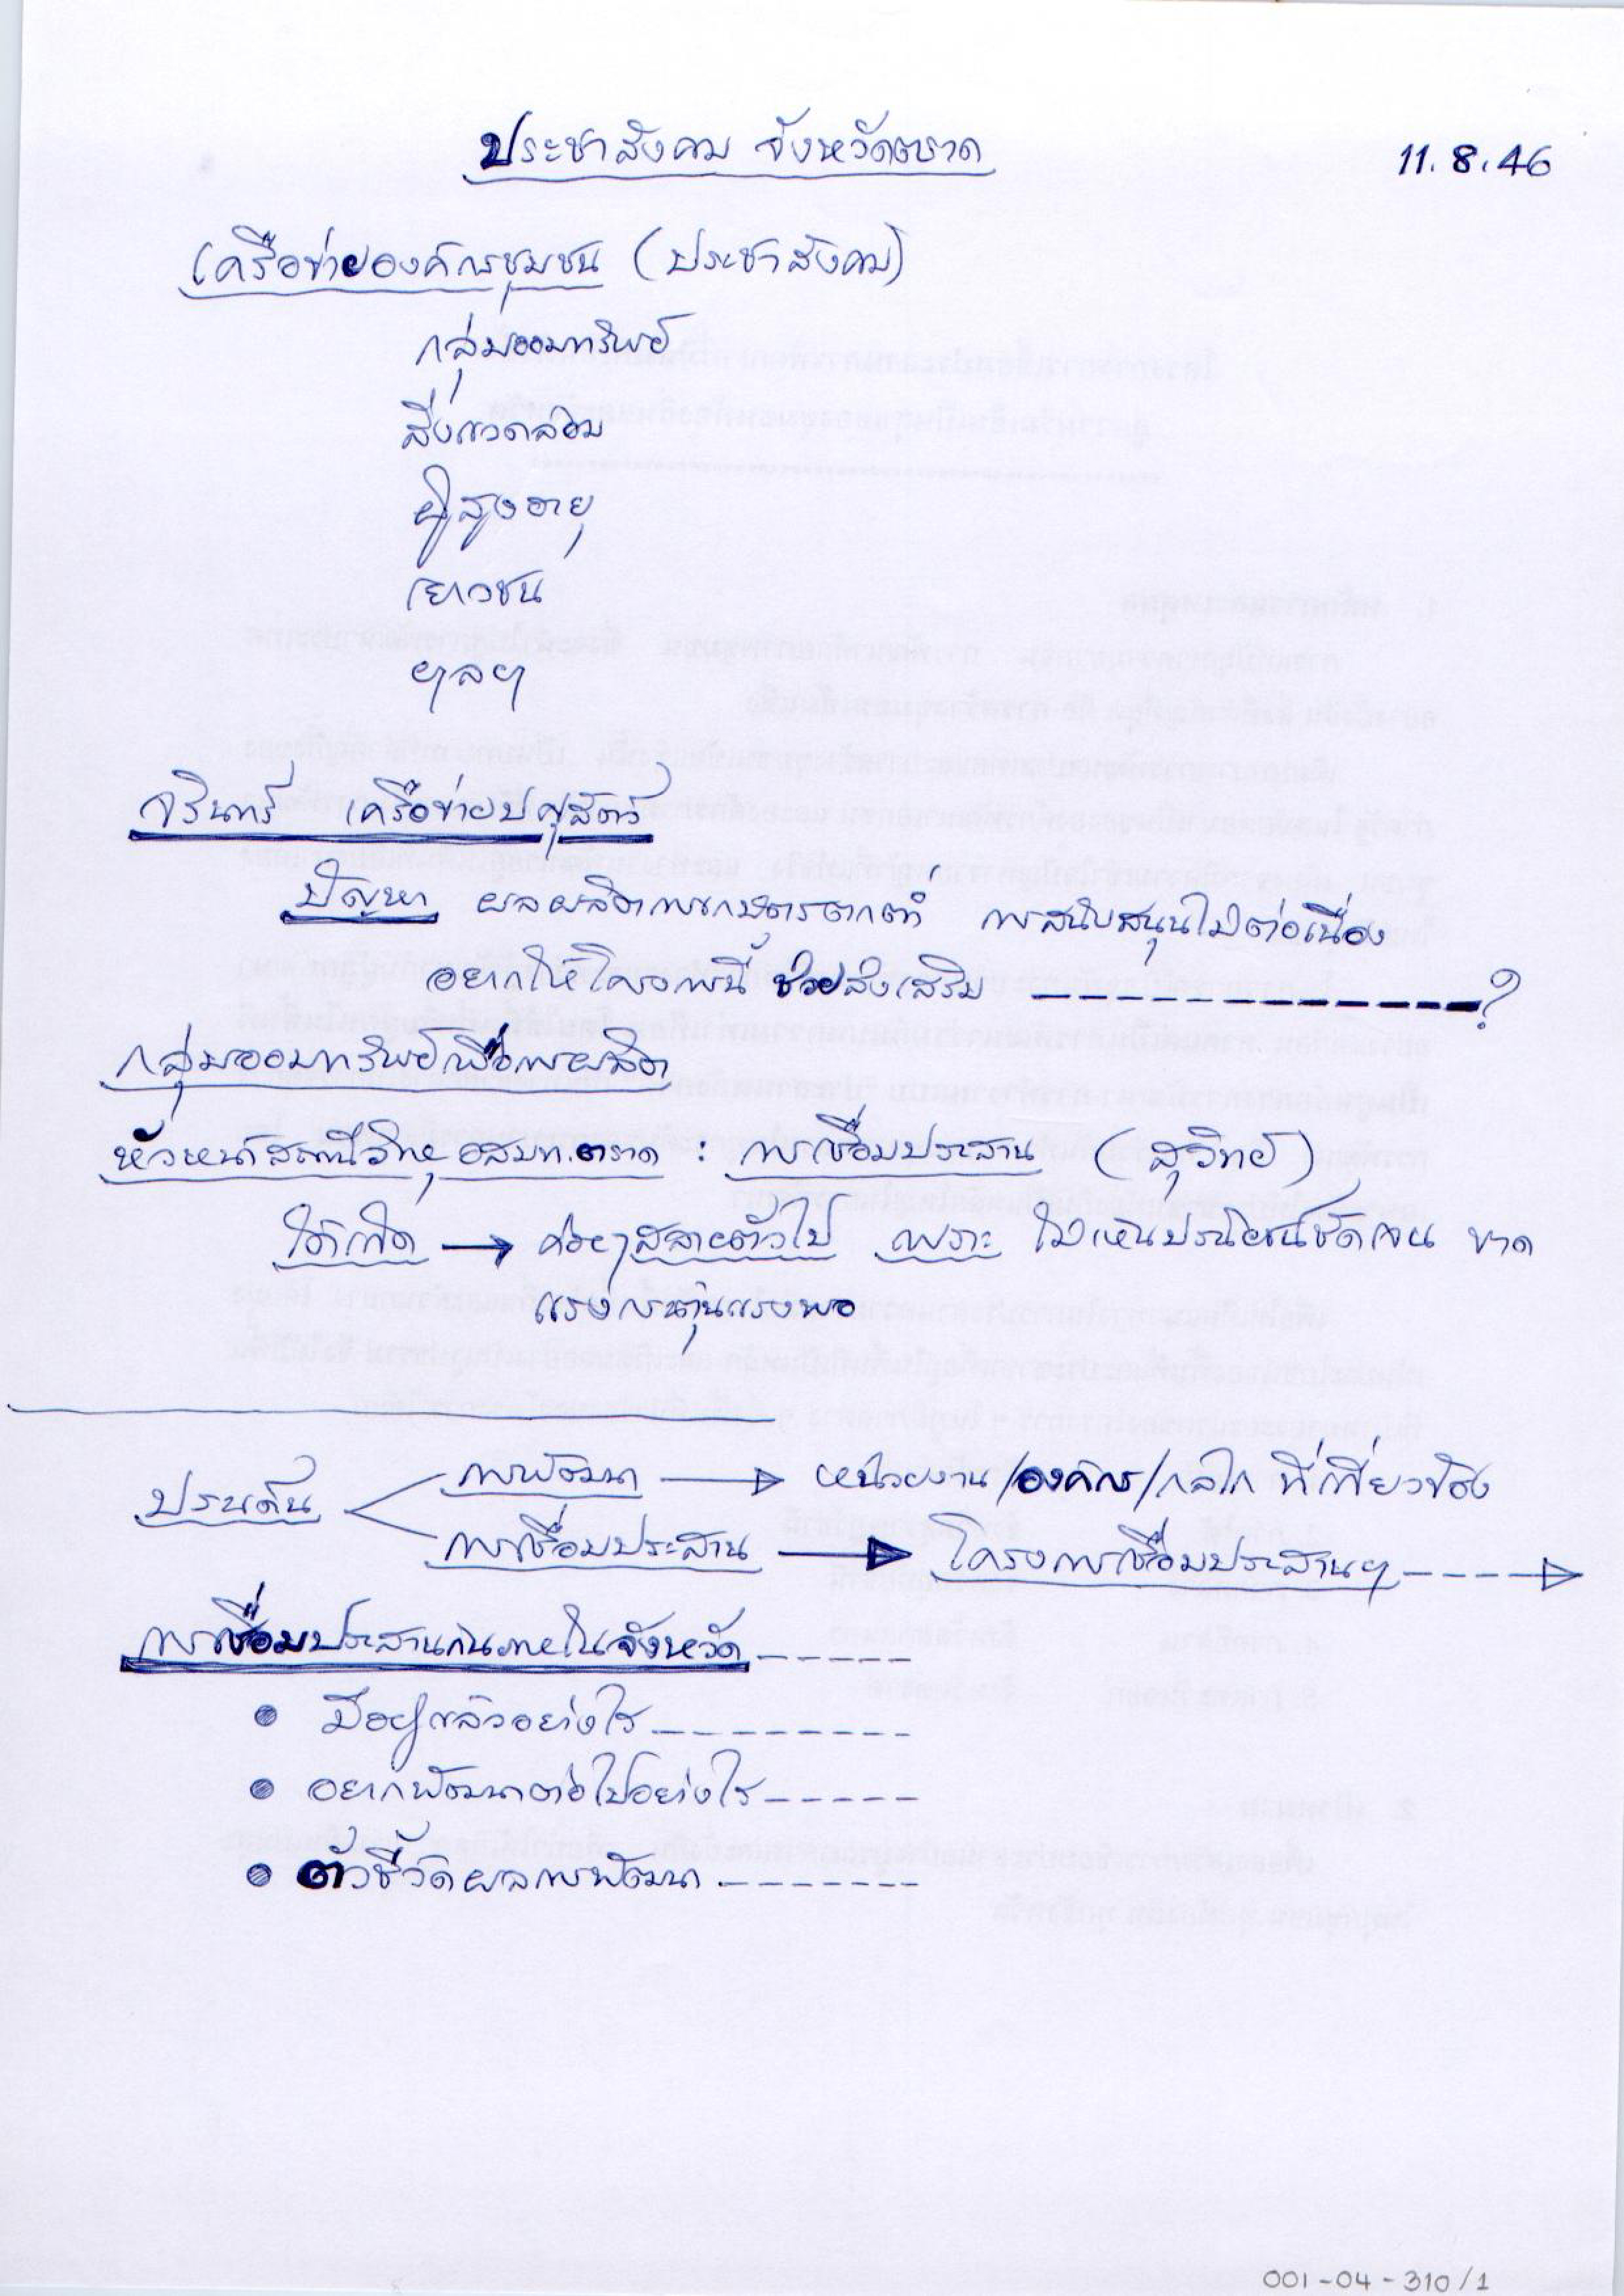 ประชาสังคม จังหวัดตราด
11.8.46
เครือข่ายองค์กรชุมชน (ประชาสังคม)
กลุ่มออมทรัพย์
สิ่งแวดล้อม
ผู้สูงอายุ
เยาวชน
ฯลฯ
จรินทร์ เครือข่ายปศุสัตว์
ปัญหา ผลผลิตการเกษตรตกต่ำ การสนับสนุนไม่ต่อเนื่อง
อยากให้โครงการนี้ ช่วยส่งเสริม ------------?
กลุ่มออมทรัพย์เพื่อการผลิต
หัวหน้าสถานีวิทยุ อสมท.ตราด : การเชื่อมประสาน (สุวิทย์)
ได้เกิด → ค่อยๆสลายตัวไป เพราะ ไม่เห็นประโยชน์ชัดเจน ขาด
แรงกระตุ้นแรงพอ
ประเด็น
การพัฒนา → หน่วยงาน/องค์กร/กลไก ที่เกี่ยวข้อง
การเชื่อมประสาน → โครงการเชื่อมประสานฯ ----→
การเชื่อมประสานกันภายในจังหวัด ------
• มีอยู่แล้วอย่างไร ---------
• อยากพัฒนาต่อไปอย่างไร ------
• ตัวชี้วัดผลการพัฒนา --------
001-04-310/1